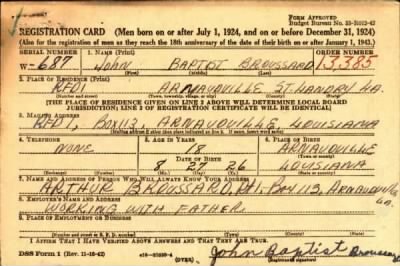 FORM APPROVED
Budget Bureau No. 33-R012-42
REGISTRATION CARD (Men born on or after July 1, 1924, and on or before December 31, 1924)
(Also for the registration of men as they reach the 18th anniversary of the date of their birth on or after January 1, 1943.)
SERIAL NUMBER
1. NAME (Print)
ORDER NUMBER
W- 687
JOHN BAPTIST BROUSSARD
13,385
2. PLACE OF RESIDENCE (Print)
RFD1 ARNAUDVILLE ST. LANDRY LA.
(Number and street) (Town, township, village, or city) (County) (State)
(THE PLACE OF RESIDENCE GIVEN ON LINE 2 ABOVE WILL DETERMINE LOCAL BOARD
JURISDICTION; LINE 2 OF REGISTRATION CERTIFICATE WILL BE IDENTICAL)
3. MAILING ADDRESS
RFD1, BOX 113, ARNAUDVILLE, LOUISIANA
4. TELEPHONE
5. AGE IN YEARS
6. PLACE OF BIRTH
NONE
18
ARNAUDVILLE
DATE OF BIRTH
8 27 26
LOUISIANA
7. NAME AND ADDRESS OF PERSON WHO WILL ALWAYS KNOW YOUR ADDRESS
ARTHUR BROUSSARD, Rt 1, Box 113, ARNAUDVILLE
LA.
8. EMPLOYER'S NAME AND ADDRESS
WORKING WITH FATHER
9. PLACE OF EMPLOYMENT OR BUSINESS
I AFFIRM THAT I HAVE VERIFIED ABOVE ANSWERS AND THAT THEY ARE TRUE.
DSS Form 1 (Rev. 11-16-42)
(OVER)
John Baptist Broussard